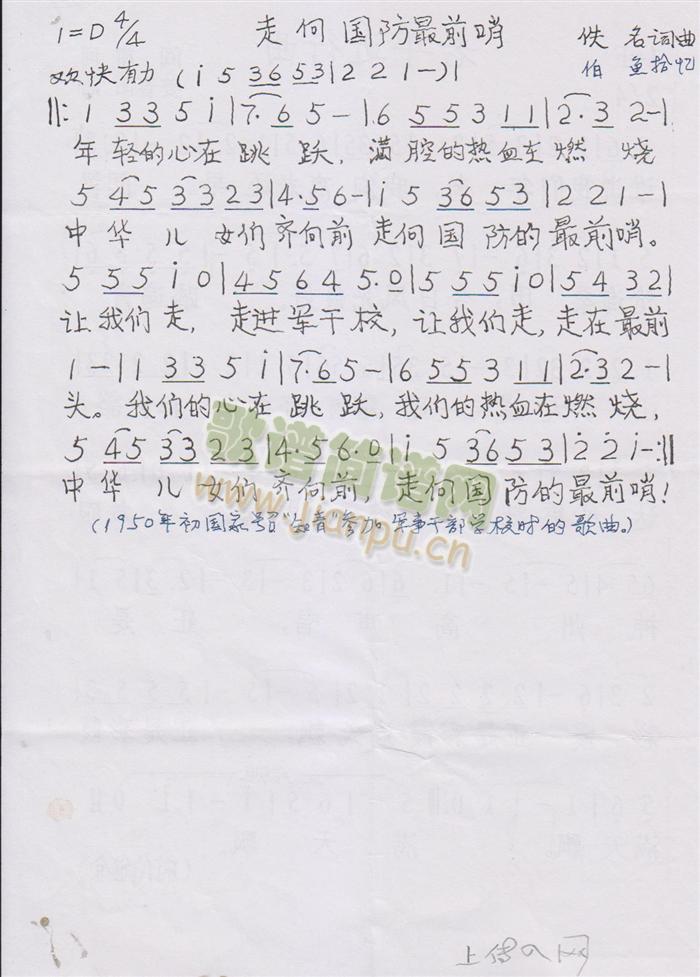 1=D 4/4 走向国防最前哨 佚名词曲
欢快有力 (i 5 36 53|2 2 1 -)| 伯鱼拾忆
‖: 1 33 5 i|7·6 5 -|6 55 3 11|2·3 2 -|
年轻的心在跳跃，满腔的热血在燃烧
5 45 33 23|4·5 6 -|i 5 36 53|2 2 1 -|
中华儿女们齐向前 走向国防的最前哨。
5 55 i 0|45 64 5·0|5 55 i 0|5 4 32|
让我们走，走进军干校，让我们走，走在最前
1 -|1 33 5 i|7·6 5 -|6 55 3 11|2·3 2 -|
头。我们的心在跳跃，我们的热血在燃烧，
5 45 33 23|4·5 6·0|i 5 36 53|2 2 i -:‖
中华儿女们齐向前，走向国防的最前哨！
(1950年初国家号召"知青"参加军事干部学校时的歌曲。)
歌谱简谱网
www.jianpu.cn
上传入网